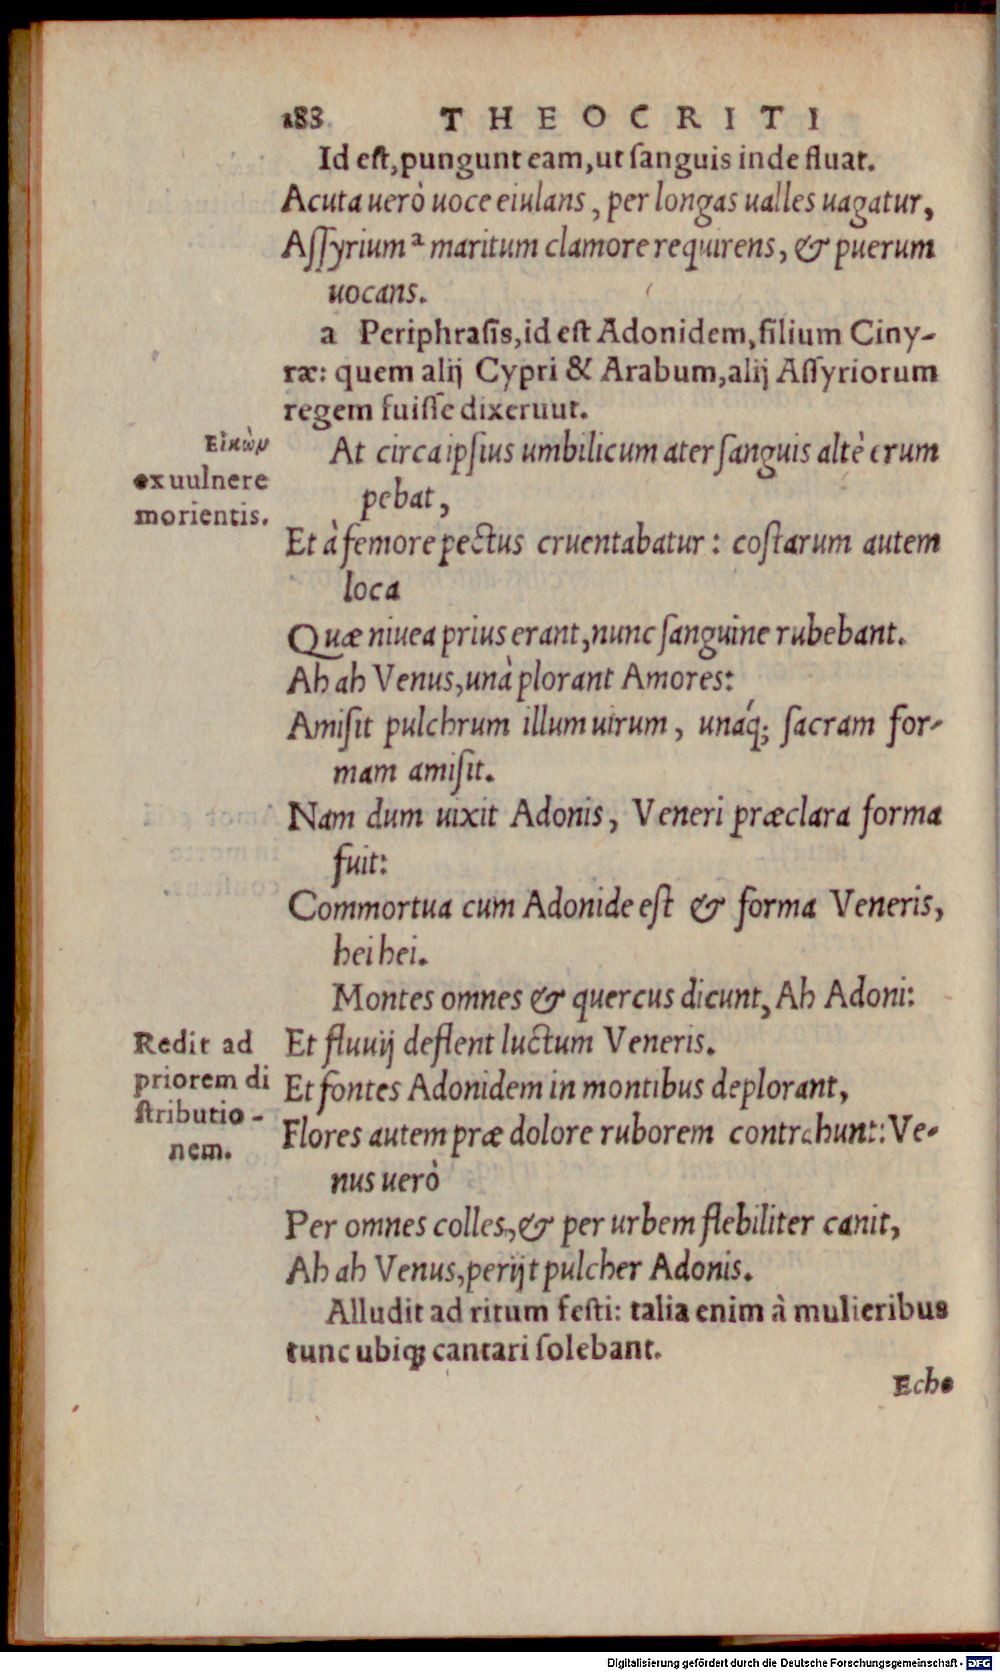 183 THEOCRITI
Id est, pungunt eam, ut sanguis inde fluat.
Acuta uerò uoce eiulans, per longas ualles uagatur,
Assyrium a maritum clamore requirens, & puerum
uocans.
a Periphrasis, id est Adonidem, filium Ciny-
ræ: quem alij Cypri & Arabum, alij Assyriorum
regem fuisse dixeruut.
Εἰκὼν
ex uulnere
morientis.
At circa ipsius umbilicum ater sanguis altè erum
pebat,
Et à femore pectus cruentabatur: costarum autem
loca
Quæ niuea prius erant, nunc sanguine rubebant.
Ah ah Venus, unà plorant Amores:
Amisit pulchrum illum uirum, unáq; sacram for-
mam amisit.
Nam dum uixit Adonis, Veneri præclara forma
fuit:
Commortua cum Adonide est & forma Veneris,
hei hei.
Montes omnes & quercus dicunt, Ah Adoni:
Redit ad
priorem di
stributio-
nem.
Et fluuij deflent luctum Veneris.
Et fontes Adonidem in montibus deplorant,
Flores autem præ dolore ruborem contrahunt: Ve-
nus uerò
Per omnes colles, & per urbem flebiliter canit,
Ah ah Venus, perijt pulcher Adonis.
Alludit ad ritum festi: talia enim à mulieribus
tunc ubiq; cantari solebant.
Echo
Digitalisierung gefördert durch die Deutsche Forschungsgemeinschaft - DFG